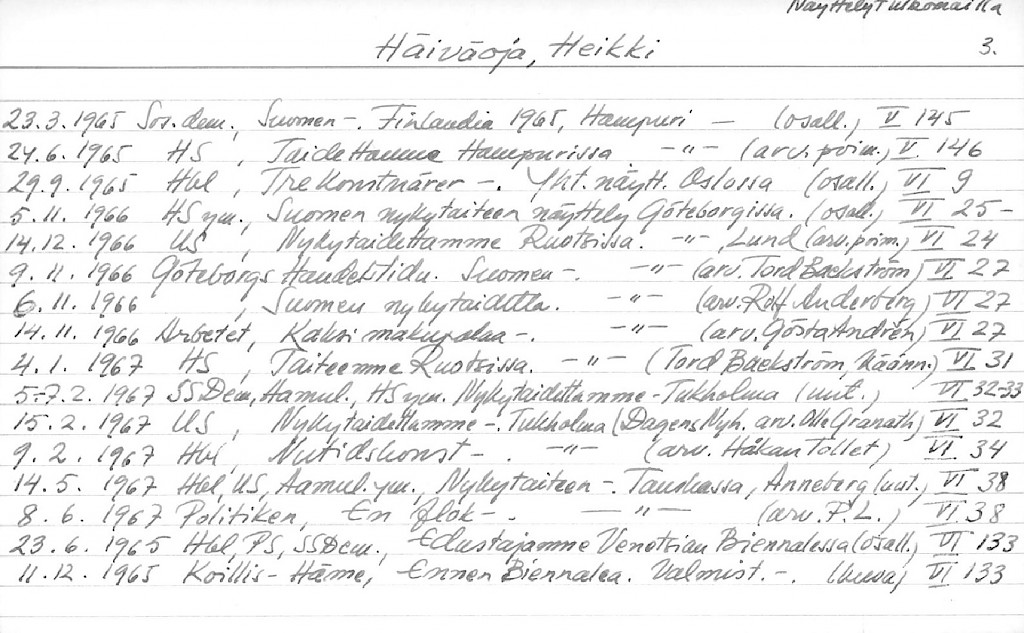 Näyttelyt ulkomailla
Häiväoja, Heikki 3.
23.3.1965 Sos.dem., Suomen -. Finlandia 1965, Hampuri — (osall.) V 145
24.6.1965 HS, Taidettamme Hampurissa —"— (arv. poim.) V 146
29.9.1965 Hbl, Tre Konstnärer -. Yht. näytt. Oslossa (osall.) VI 9
5.11.1966 HS ym., Suomen nykytaiteen näyttely Göteborgissa. (osall.) VI 25-
14.12.1966 US, Nykytaidettamme Ruotsissa. —"— Lund (arv. poim.) VI 24
9.11.1966 Göteborgs Handelstidn. Suomen -. —"— (arv. Tord Baeckström) VI 27
6.11.1966 , Suomen nykytaidetta. —"— (arv. Rolf Anderberg) VI 27
14.11.1966 Arbetet, Kaksi makupalaa -. —"— (arv. Gösta Andrén) VI 27
4.1.1967 HS, Taiteemme Ruotsissa. —"— (Tord Baeckström, käänn.) VI 31
5.-7.2.1967 SSDem, Hamul., HS ym. Nykytaidettamme - Tukholma (uut.) VI 32-33
15.2.1967 US, Nykytaidettamme -. Tukholma (Dagens Nyh. arv. Olle Granath) VI 32
9.2.1967 Hbl, Nutidskonst -. —"— (arv. Håkan Tollet) VI 34
14.5.1967 Hbl, US, Aamul. ym., Nykytaiteen -. Tanskassa, Anneberg (uut.) VI 38
8.6.1967 Politiken, En flok -. —"— (arv. P.L.) VI 38
23.6.1965 Hbl, PS, SSDem., Edustajamme Venetsian Biennalessa (osall.) VI 133
11.12.1965 Koillis-Häme, Ennen Biennalea. Valmist. -. (kuva) VI 133